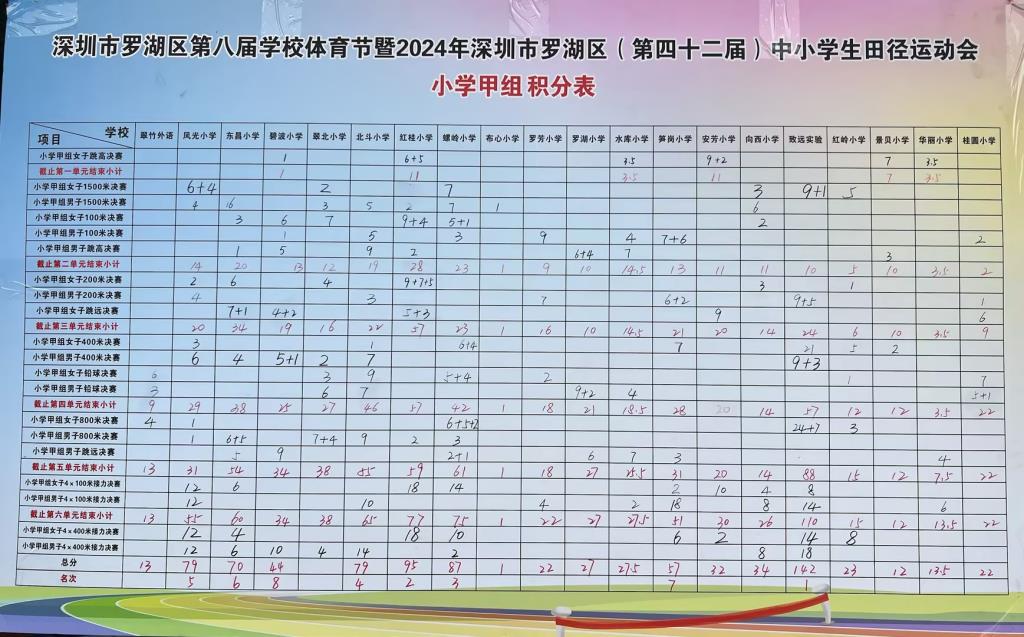 深圳市罗湖区第八届学校体育节暨2024年深圳市罗湖区（第四十二届）中小学生田径运动会
小学甲组 积分表
项目 学校 翠竹外语 凤光小学 东昌小学 碧波小学 翠北小学 北斗小学 红桂小学 螺岭小学 布心小学 罗芳小学 罗湖小学 水库小学 笋岗小学 安芳小学 向西小学 致远实验 红岭小学 景贝小学 华丽小学 桂园小学
小学甲组女子跳高决赛 1 6+5 3.5 9+2 7 3.5
截止第一单元结束小计 1 11 3.5 11 7 3.5
小学甲组女子1500米决赛 6+4 2 7 3 9+1 5
小学甲组男子1500米决赛 4 16 3 5 2 7 1 6
小学甲组女子100米决赛 3 6 7 9+4 5+1 2
小学甲组男子100米决赛 1 5 3 9 4 7+6 2
小学甲组男子跳高决赛 1 5 9 2 6+4 7 3
截止第二单元结束小计 14 20 13 12 19 28 23 1 9 10 14.5 13 11 11 10 5 10 3.5 2
小学甲组女子200米决赛 2 6 4 9+7+5 3 1
小学甲组男子200米决赛 4 3 7 6+2 9+5 1
小学甲组女子跳远决赛 7+1 4+2 5+3 9 6
截止第三单元结束小计 20 34 19 16 22 57 23 1 16 10 14.5 21 20 14 24 6 10 3.5 9
小学甲组女子400米决赛 3 1 6+4 7 21 5 2
小学甲组男子400米决赛 6 4 5+1 2 7 9+3
小学甲组女子铅球决赛 6 3 9 5+4 2 1 7
小学甲组男子铅球决赛 3 6 7 9+2 4 5+1
截止第四单元结束小计 9 29 38 25 27 46 57 42 1 18 21 18.5 28 20 14 57 12 12 3.5 22
小学甲组女子800米决赛 4 1 6+5+2 24+7 3
小学甲组男子800米决赛 1 6+5 7+4 9 2 3
小学甲组男子跳远决赛 5 9 2+1 6 7 3 4
截止第五单元结束小计 13 31 54 34 38 55 59 61 1 18 27 25.5 31 20 14 88 15 12 7.5 22
小学甲组女子4×100米接力决赛 12 6 18 14 2 10 4 8
小学甲组男子4×100米接力决赛 12 10 4 2 18 8 14 6
截止第六单元结束小计 13 55 60 34 38 65 77 75 1 22 27 27.5 51 30 26 110 15 12 13.5 22
小学甲组女子4×400米接力决赛 12 4 18 10 6 2 14 8
小学甲组男子4×400米接力决赛 12 6 10 4 14 2 8 18
总分 13 79 70 44 79 95 87 1 22 27 27.5 57 32 34 142 23 12 13.5 22
名次 5 6 8 4 2 3 7 1